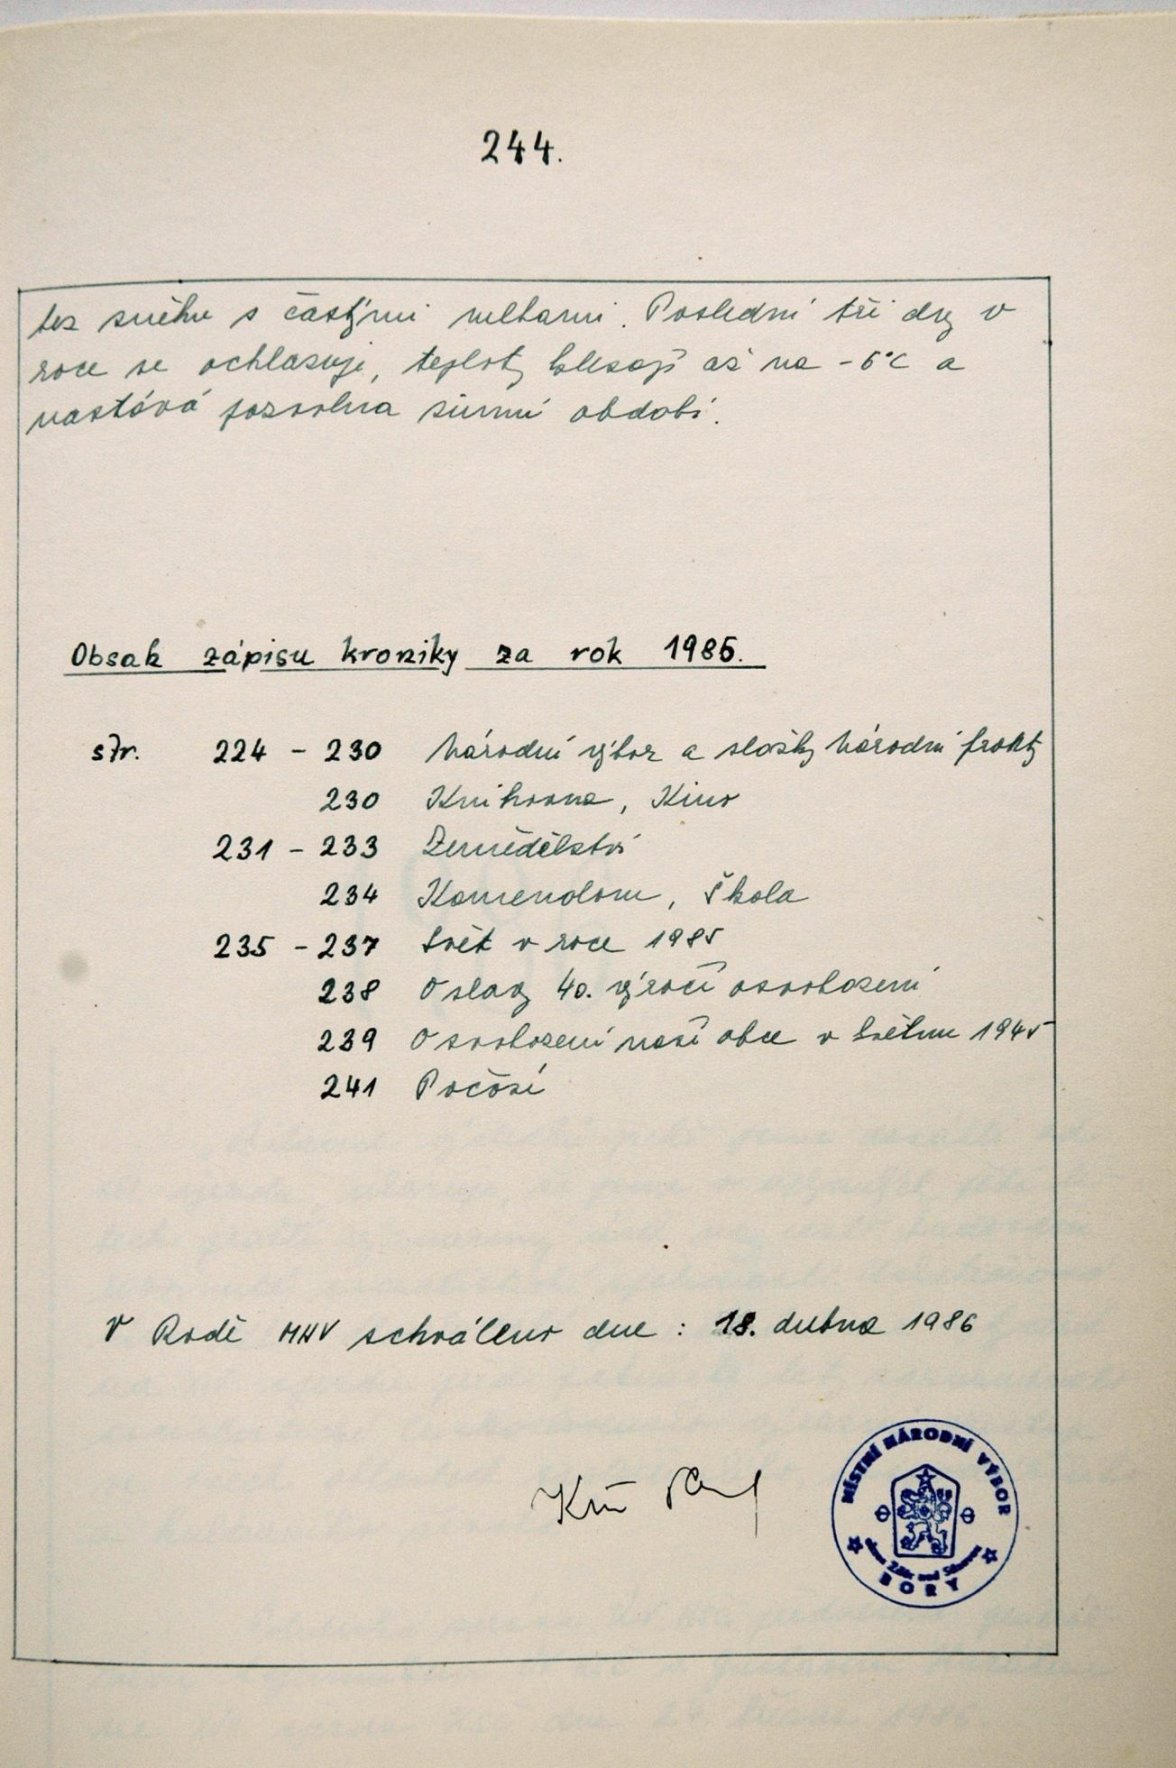 244.
bez sněhu s častými mlhami. Poslední tři dny v
roce se ochlazuje, teploty klesají až na -6°C a
nastává pozvolna zimní období.
Obsah zápisu kroniky za rok 1985.
str. 224 - 230 Národní výbor a složky Národní fronty
230 Knihovna, Kino
231 - 233 Zemědělství
234 Kamenolom, Škola
235 - 237 Svět v roce 1985
238 Oslavy 40. výročí osvobození
239 Osvobození naší obce v květnu 1945
241 Počasí
V Radě MNV schváleno dne : 18. dubna 1986
MÍSTNÍ NÁRODNÍ VÝBOR
okres Žďár nad Sázavou
BORY